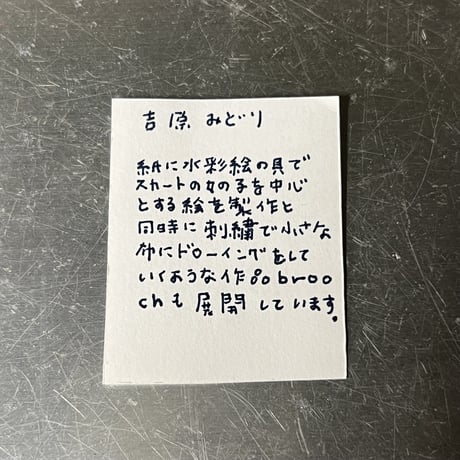 吉原 みどり
紙に水彩絵の具で
スカートの女の子を中心
とする絵を製作と
同時に刺繍で小さな
布にドローイングをして
いくような作品broo
chも展開しています。